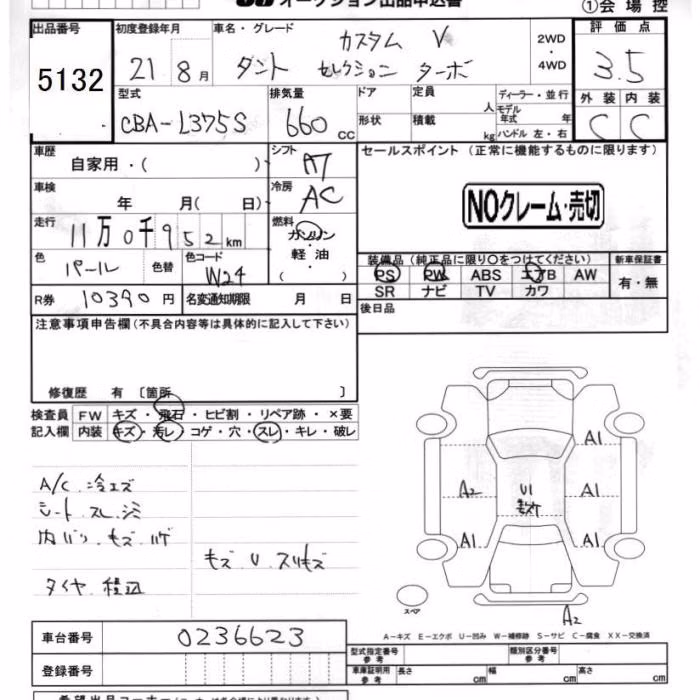 オークション出品申込書
①会場控
出品番号 初度登録年月 車名・グレード 評価点
5132 21 8月 カスタム V
タント セレクション ターボ 2WD・4WD 3.5
型式 排気量 ドア 定員 人 ディーラー・並行 外装 内装
CBA-L375S 660 cc 形状 積載 kg モデル年式 年 ハンドル 左・右 C C
車歴 自家用・( ) シフト AT セールスポイント (正常に機能するものに限ります)
車検 年 月( 日) 冷房 AC
NOクレーム・売切
走行 11万0千952km 燃料 ガソリン・軽油・( )
色 パール 色替 色コード W24
装備品 (純正品に限り○をつけてください) 新車保証書
PS PW ABS エアB AW 有・無
SR ナビ TV カワ
R券 10390円 名変通知期限 月 日 後日品
注意事項申告欄 (不具合内容等は具体的に記入して下さい)
修復歴 有 〔箇所 〕
検査員 FW キズ・飛石・ヒビ割・リペア跡・×要
記入欄 内装 キズ・汚レ・コゲ・穴・スレ・キレ・破レ
A/C 冷エズ
シート スレ シミ
内バリ キズ ハゲ
キズ U スリキズ
タイヤ 積込
A1
A2 U1 A1
キズケ
A1 A1
スペア
A2
A-キズ E-エクボ U-凹み W-補修跡 S-サビ C-腐食 XX-交換済
車台番号 0236623
型式指定番号 参考 類別区分番号 参考
登録番号
車庫証明用 参考 長さ cm 幅 cm 高さ cm